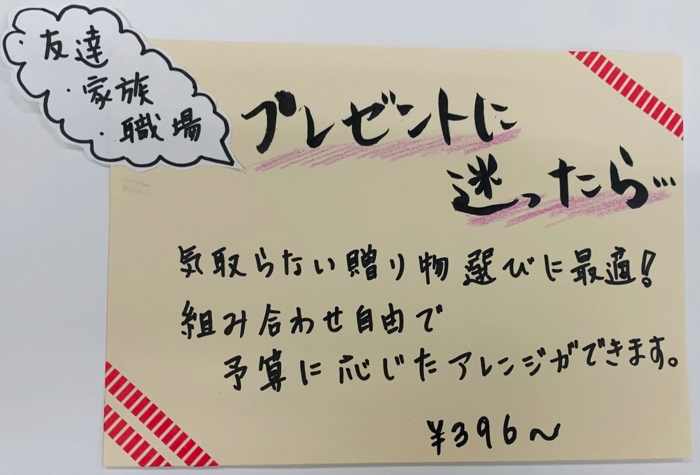 ・友達
・家族
・職場
プレゼントに
迷ったら…
気取らない贈り物選びに最適!
組み合わせ自由で
予算に応じたアレンジができます。
¥396〜